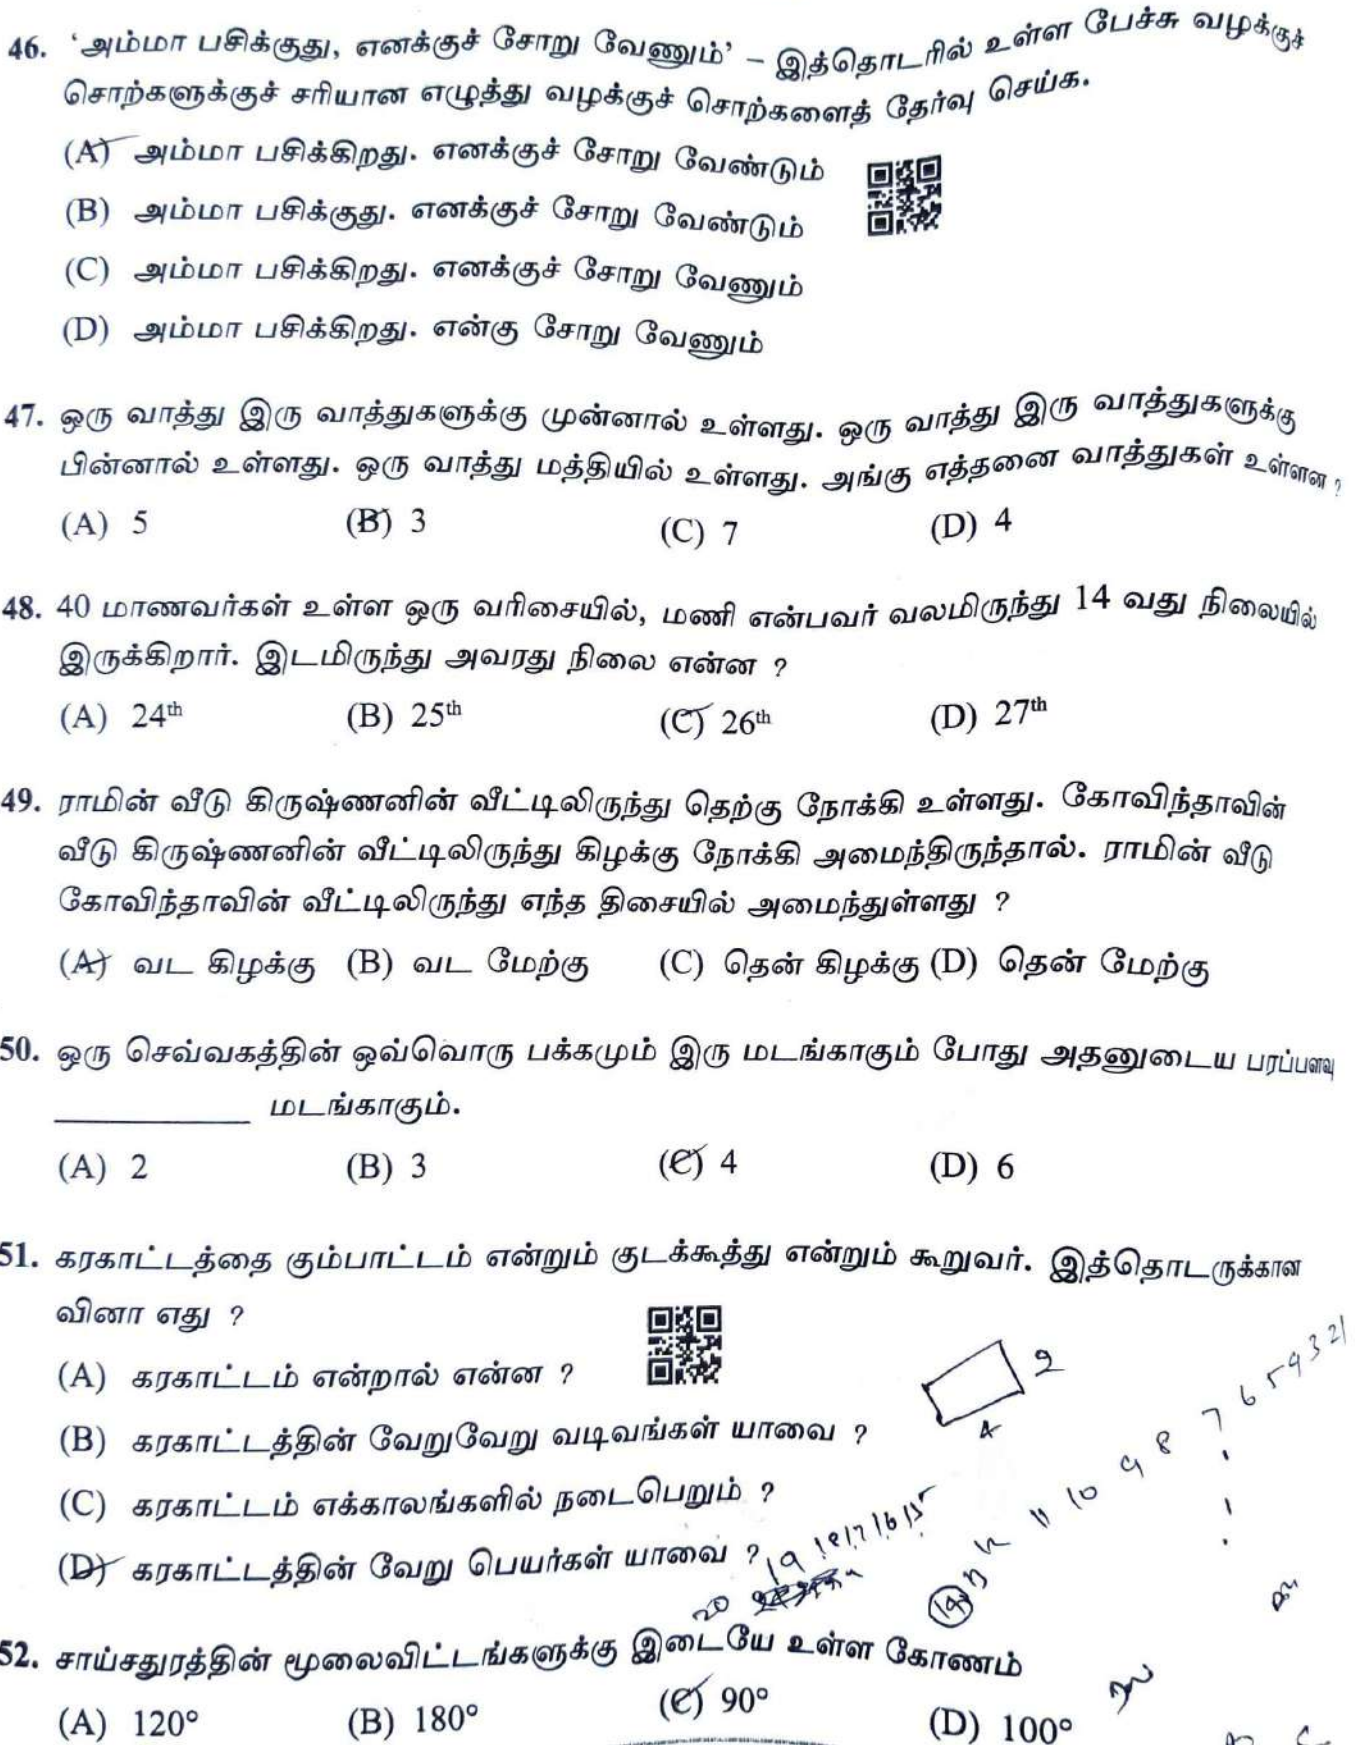 46. ‘அம்மா பசிக்குது, எனக்குச் சோறு வேணும்’ – இத்தொடரில் உள்ள பேச்சு வழக்குச்
சொற்களுக்குச் சரியான எழுத்து வழக்குச் சொற்களைத் தேர்வு செய்க.
(A) அம்மா பசிக்கிறது. எனக்குச் சோறு வேண்டும்
(B) அம்மா பசிக்குது. எனக்குச் சோறு வேண்டும்
(C) அம்மா பசிக்கிறது. எனக்குச் சோறு வேணும்
(D) அம்மா பசிக்கிறது. என்கு சோறு வேணும்
47. ஒரு வாத்து இரு வாத்துகளுக்கு முன்னால் உள்ளது. ஒரு வாத்து இரு வாத்துகளுக்கு
பின்னால் உள்ளது. ஒரு வாத்து மத்தியில் உள்ளது. அங்கு எத்தனை வாத்துகள் உள்ளன ?
(A) 5 (B) 3 (C) 7 (D) 4
48. 40 மாணவர்கள் உள்ள ஒரு வரிசையில், மணி என்பவர் வலமிருந்து 14 வது நிலையில்
இருக்கிறார். இடமிருந்து அவரது நிலை என்ன ?
(A) 24th (B) 25th (C) 26th (D) 27th
49. ராமின் வீடு கிருஷ்ணனின் வீட்டிலிருந்து தெற்கு நோக்கி உள்ளது. கோவிந்தாவின்
வீடு கிருஷ்ணனின் வீட்டிலிருந்து கிழக்கு நோக்கி அமைந்திருந்தால். ராமின் வீடு
கோவிந்தாவின் வீட்டிலிருந்து எந்த திசையில் அமைந்துள்ளது ?
(A) வட கிழக்கு (B) வட மேற்கு (C) தென் கிழக்கு (D) தென் மேற்கு
50. ஒரு செவ்வகத்தின் ஒவ்வொரு பக்கமும் இரு மடங்காகும் போது அதனுடைய பரப்பளவு
__________ மடங்காகும்.
(A) 2 (B) 3 (C) 4 (D) 6
51. கரகாட்டத்தை கும்பாட்டம் என்றும் குடக்கூத்து என்றும் கூறுவர். இத்தொடருக்கான
வினா எது ?
(A) கரகாட்டம் என்றால் என்ன ?
(B) கரகாட்டத்தின் வேறுவேறு வடிவங்கள் யாவை ?
(C) கரகாட்டம் எக்காலங்களில் நடைபெறும் ?
(D) கரகாட்டத்தின் வேறு பெயர்கள் யாவை ?
2
4
11 10 9 8 7 6 5 4 3 2 1
20 19 18 17 16 15
14
52. சாய்சதுரத்தின் மூலைவிட்டங்களுக்கு இடையே உள்ள கோணம்
(A) 120° (B) 180° (C) 90° (D) 100°